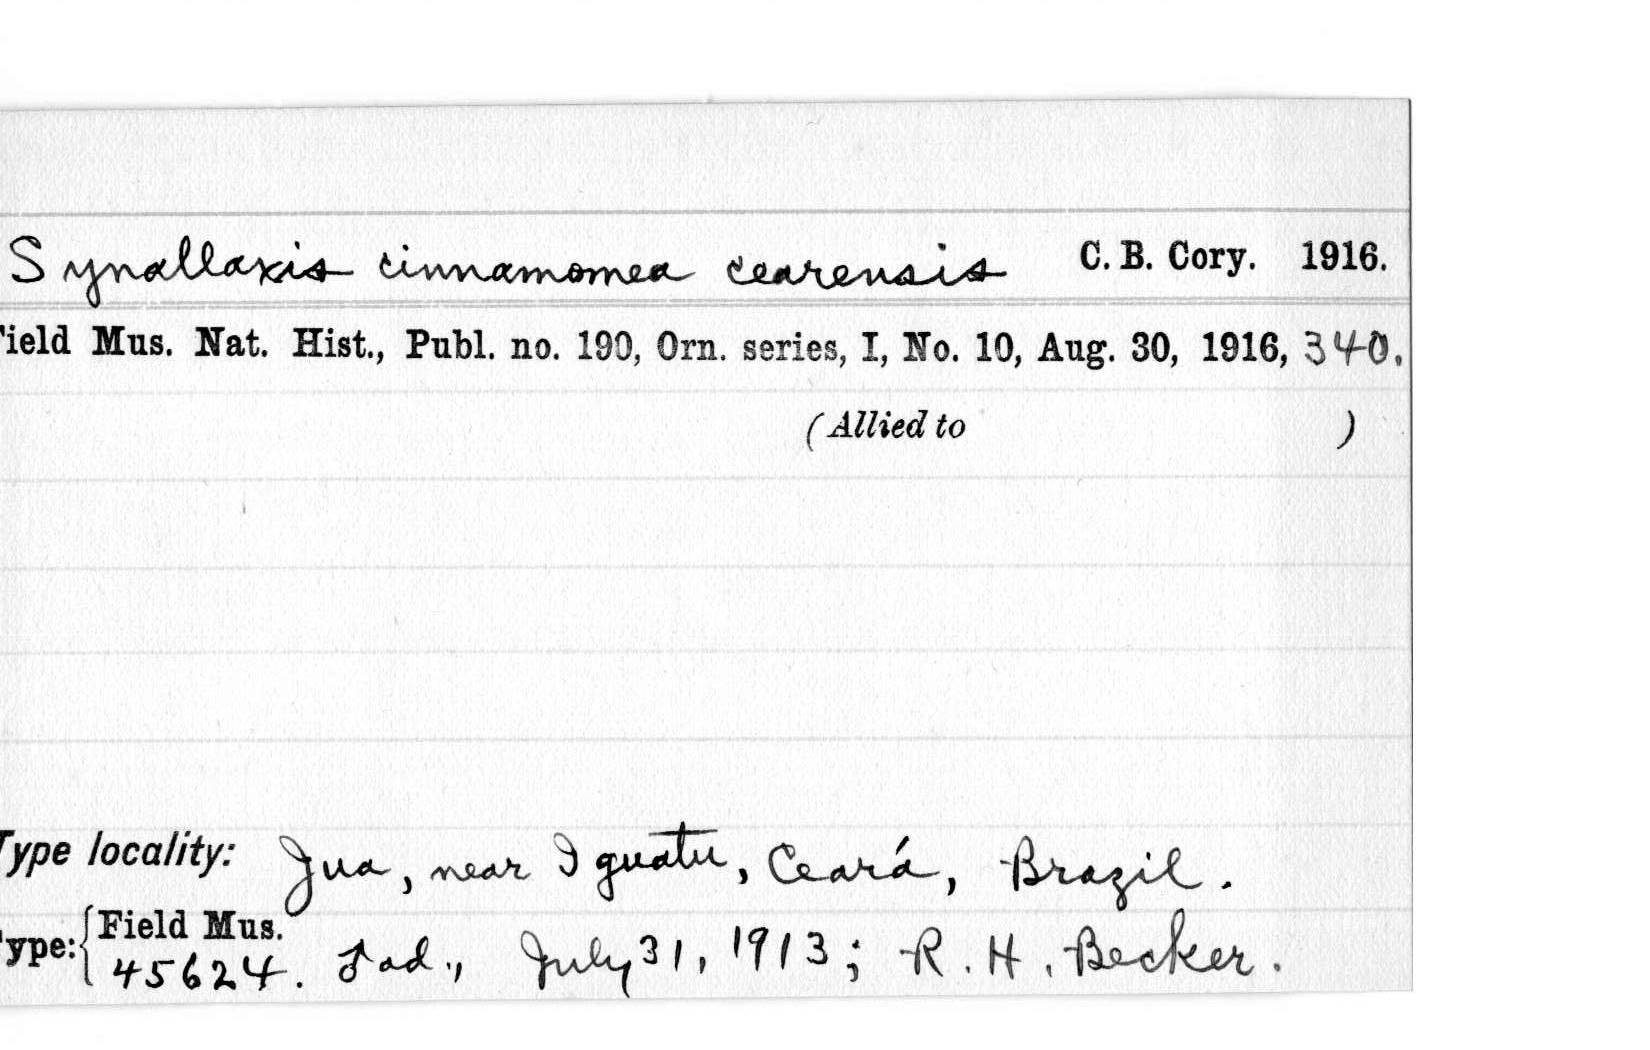 Synallaxis cinnamomea cearensis C. B. Cory. 1916.
ield Mus. Nat. Hist., Publ. no. 190, Orn. series, I, No. 10, Aug. 30, 1916, 340.
(Allied to )
Type locality: Jua, near Iguatu, Ceará, Brazil.
ype: { Field Mus.
45624. ♂ ad., July 31, 1913; R. H. Becker.